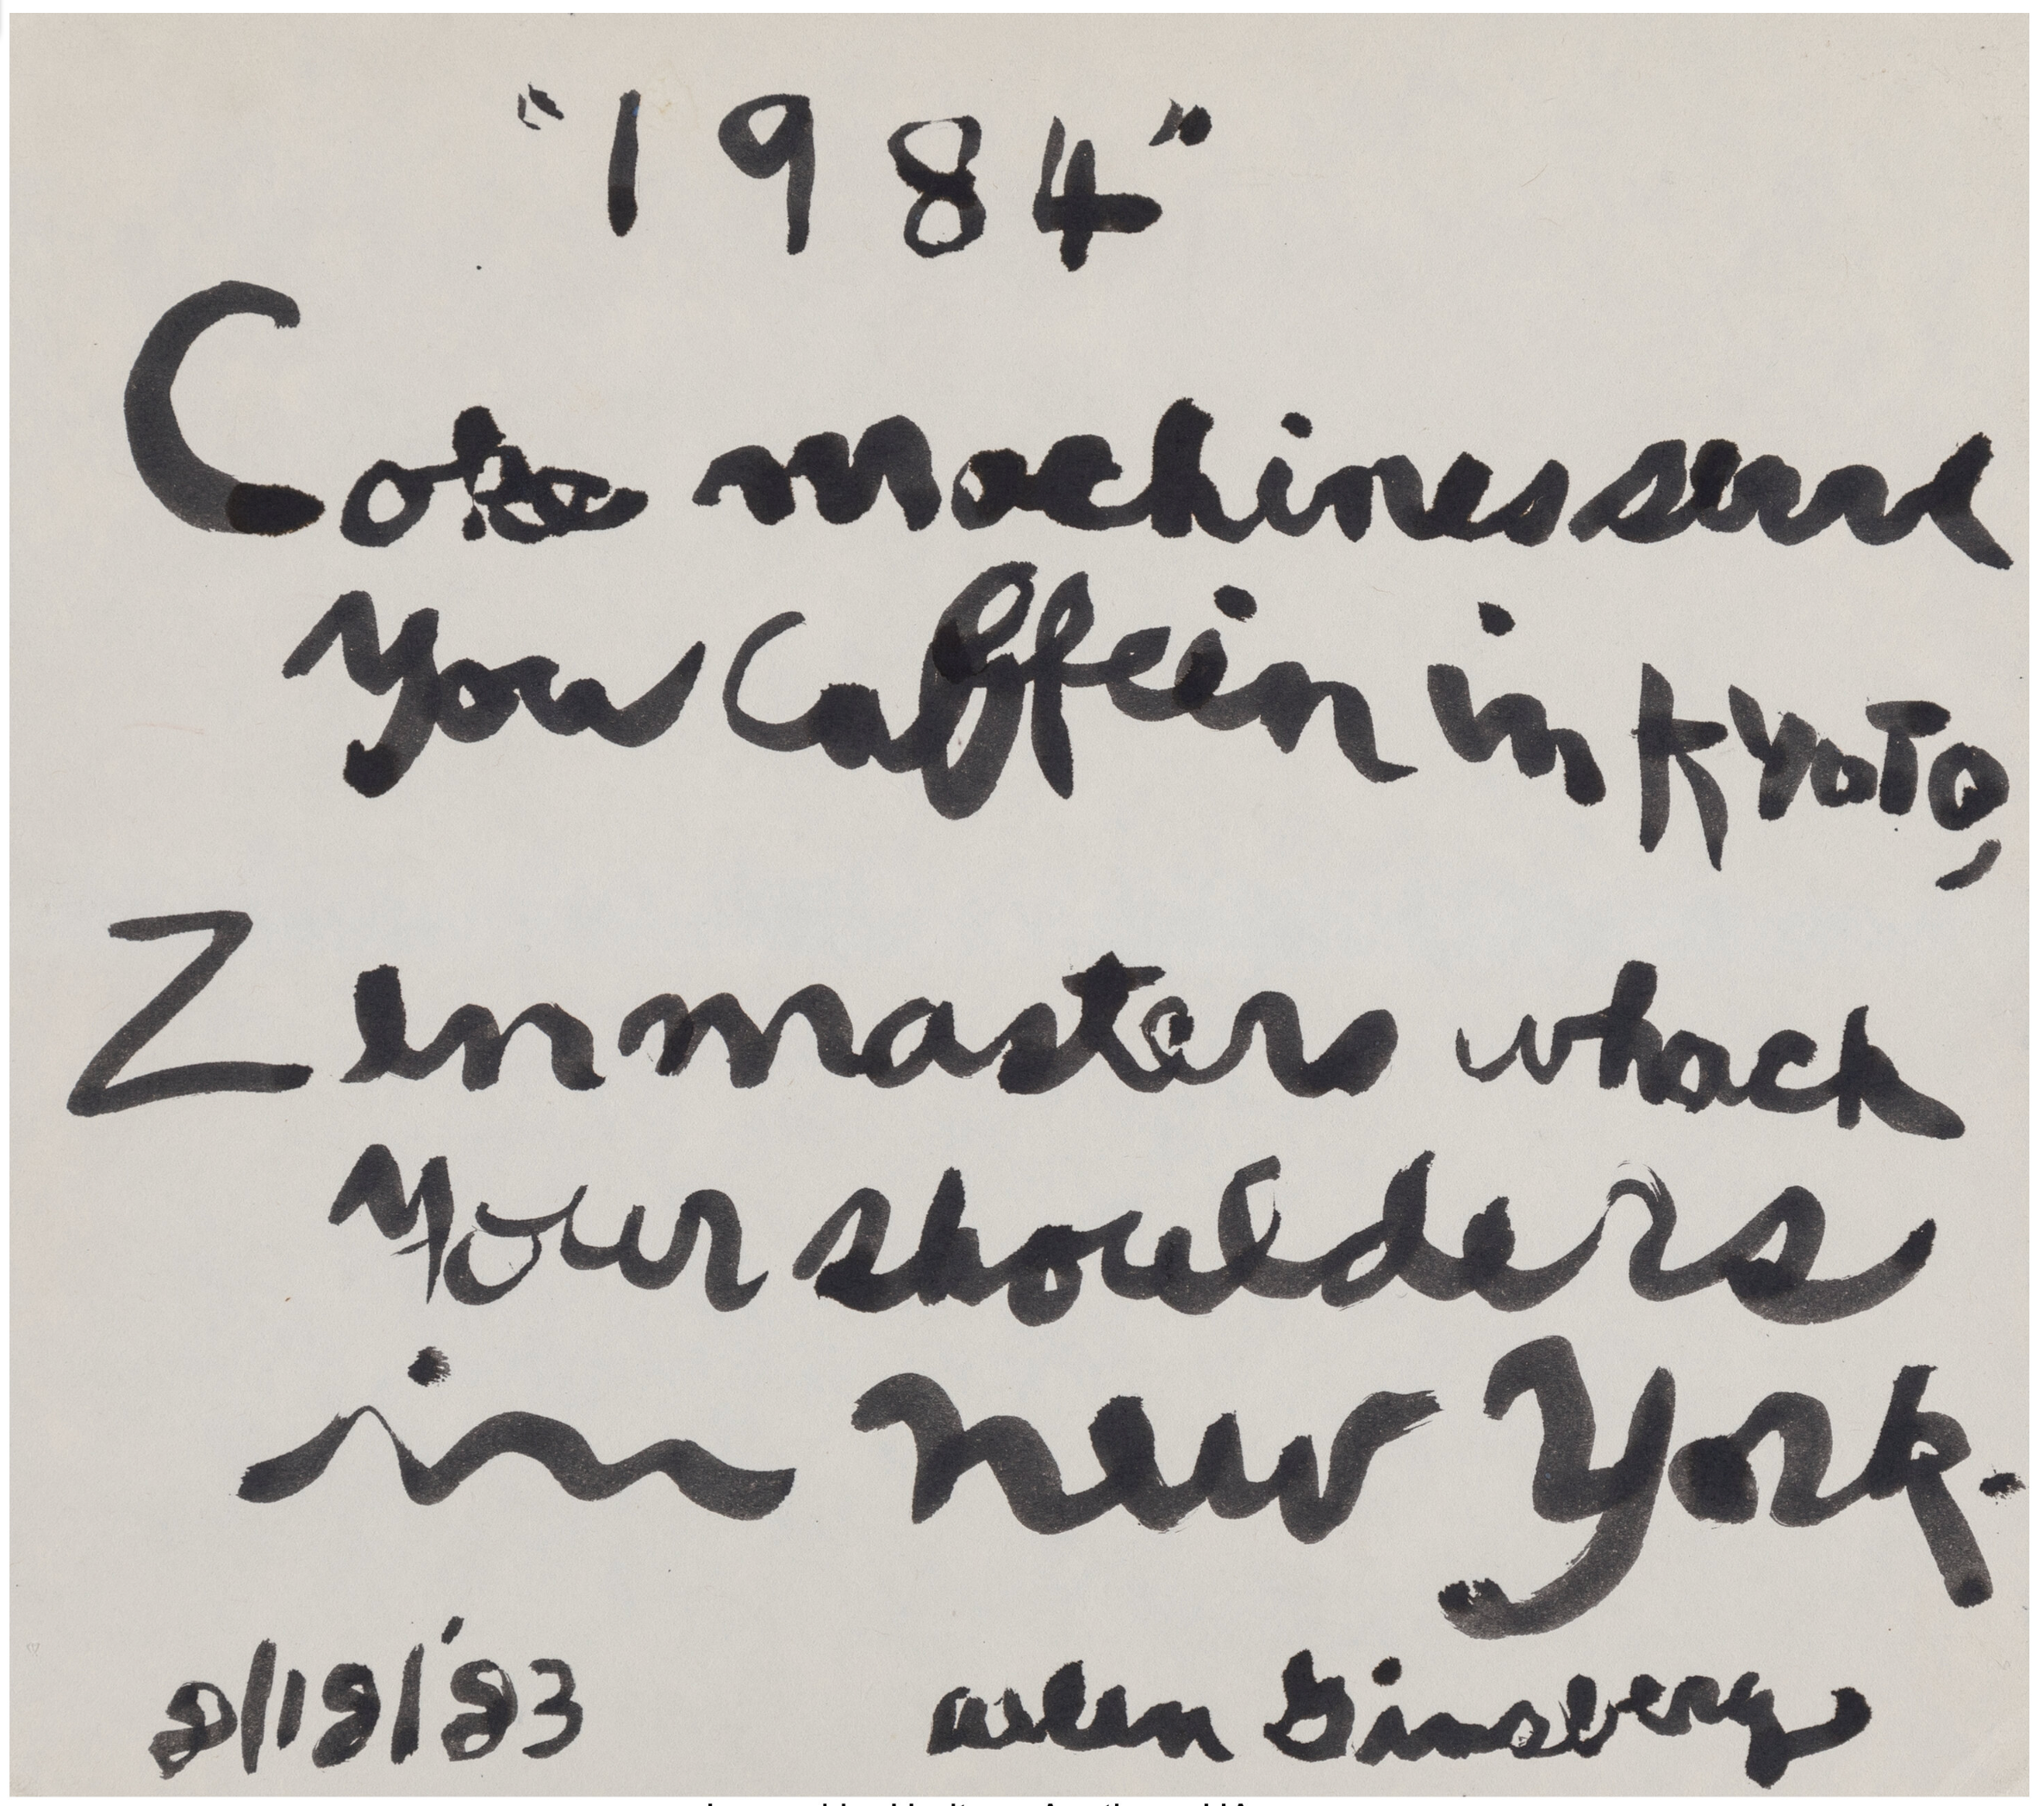 "1984"
Coke machines serve
you Caffein in Kyoto,
Zenmasters whack
your shoulders
in New York.
2/18/'83
Allen Ginsberg